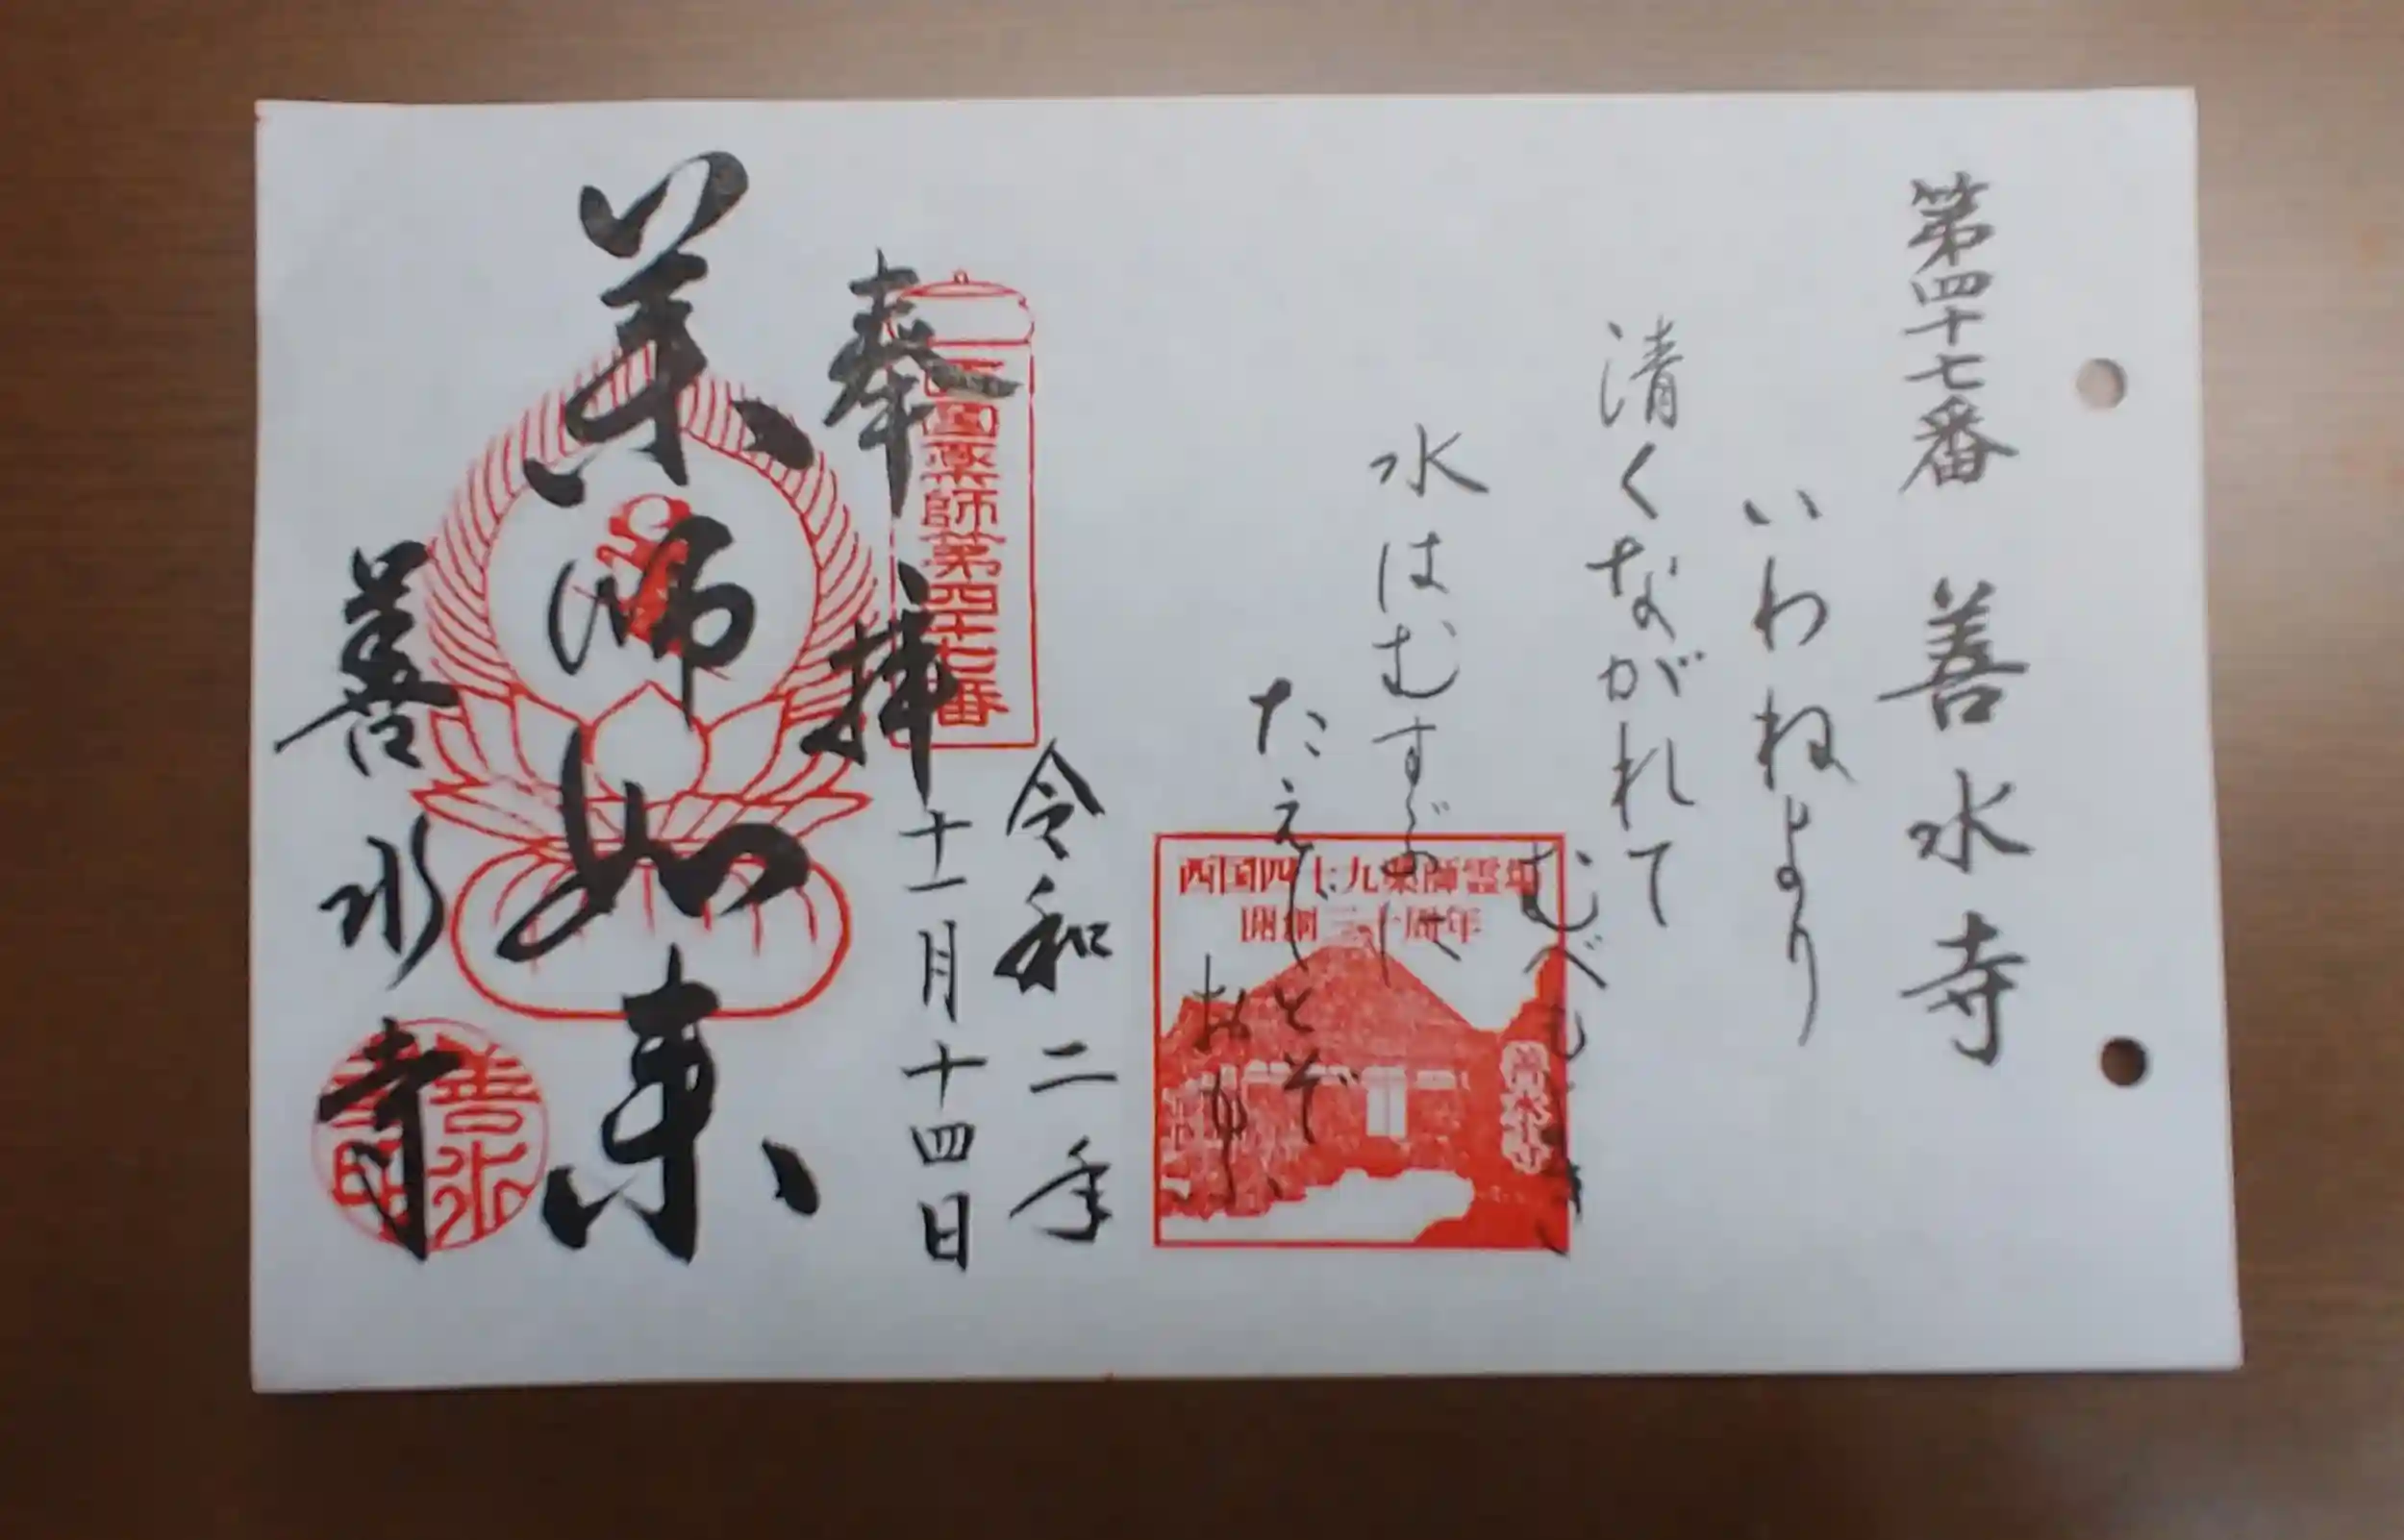 第四十七番 善水寺
いわねより
清くながれて
水はむすぶに
たえじとぞ
おもふ
西国四十九薬師霊場
開創三十周年
善水寺
令和二年
十一月十四日
西国薬師第四十七番
奉拝
薬師如来
善水寺